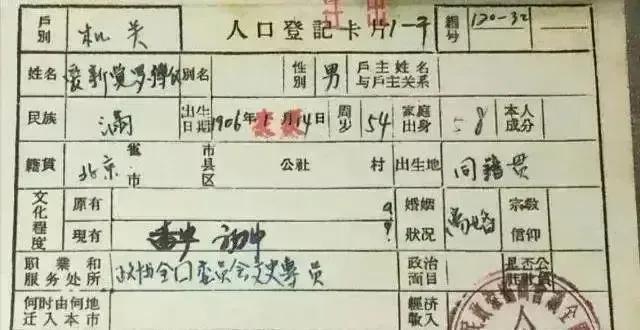 戶別 机关 人口登記卡片 1-子 編号 120-32
姓名 爱新觉罗 別名 性別 男 戶主姓名与戶主关系
民族 滿 出生日期 1906年 月14日 周岁 54 家庭出身 本人成分
籍貫 北京 省市 市县区 公社 村 出生地 同籍贯
文化程度 原有 婚姻狀况 宗教信仰
現有 初中
职業和服务处所 政协全囗委员会文史專员 政治面目 是否公社社員
何时由何地迁入本市 經济收入